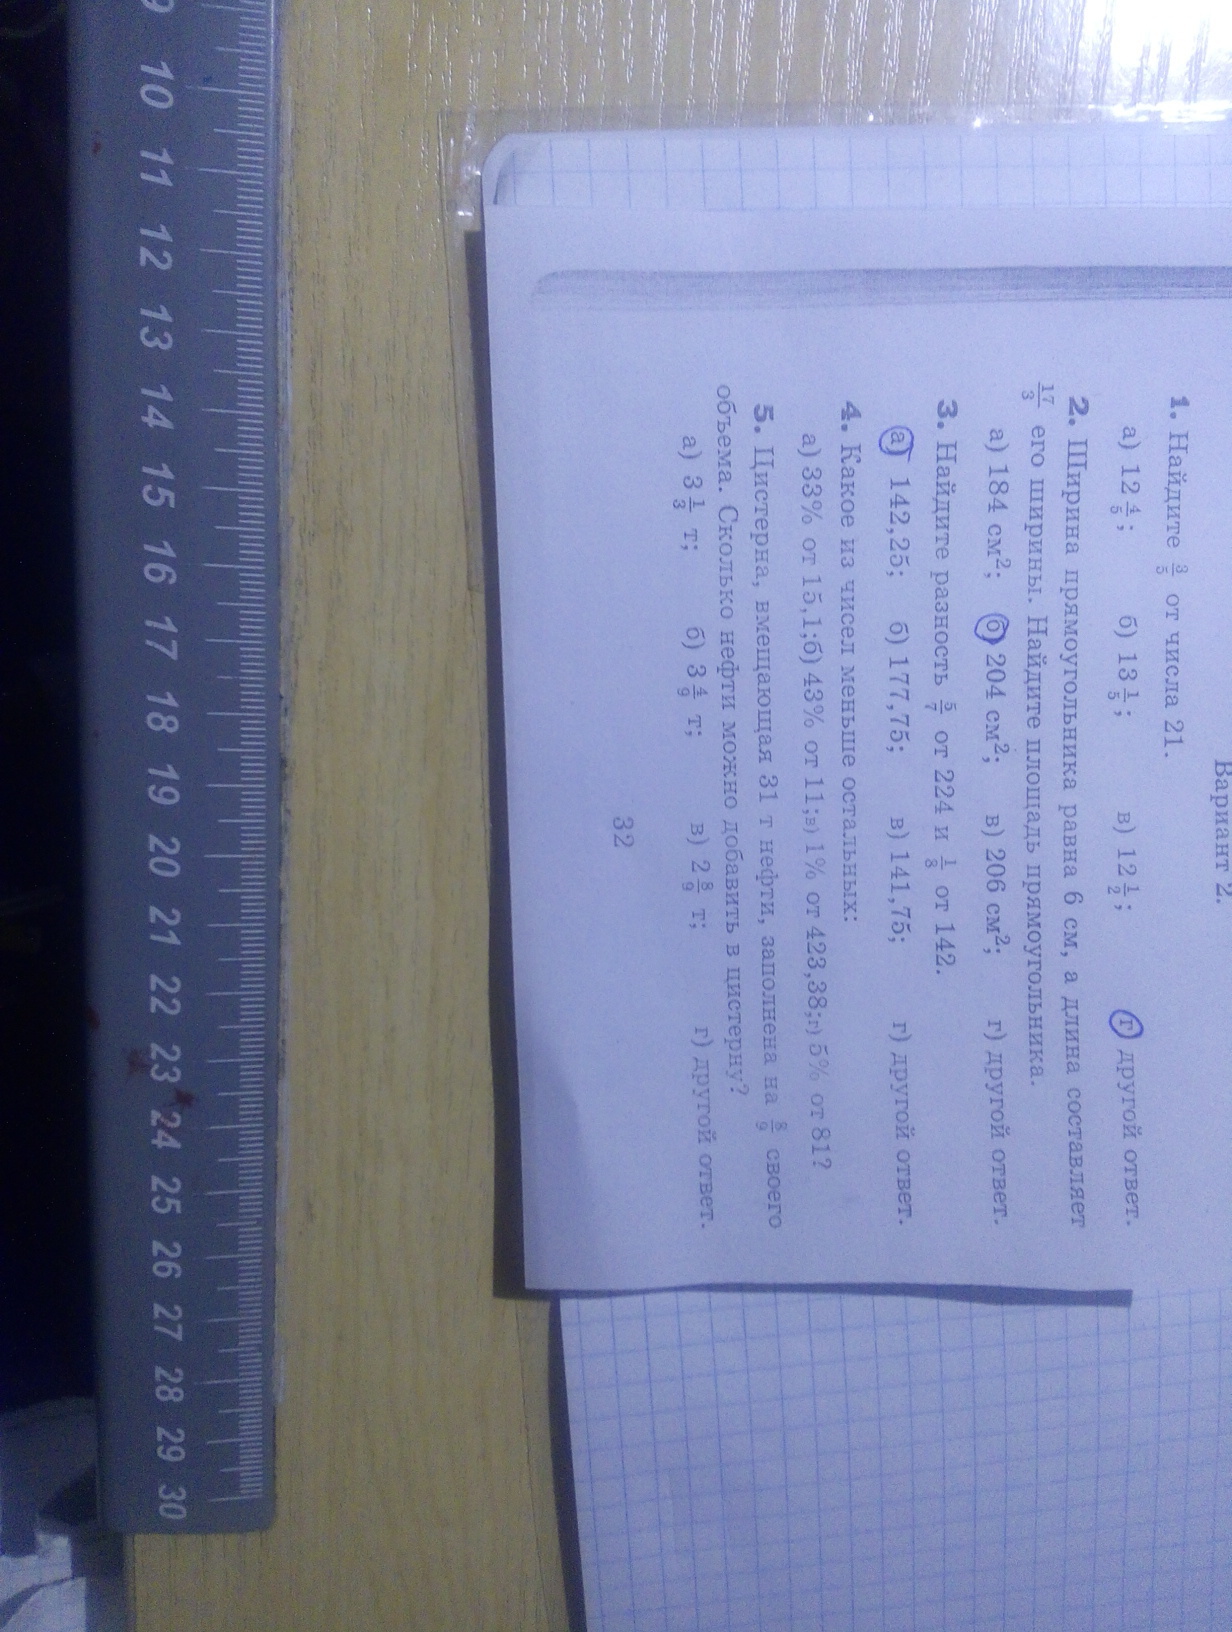 Вариант 2.
1. Найдите 3/5 от числа 21.
а) 12 4/5; б) 13 1/5; в) 12 1/2; г) другой ответ.
2. Ширина прямоугольника равна 6 см, а длина составляет
17/3 его ширины. Найдите площадь прямоугольника.
а) 184 см²; б) 204 см²; в) 206 см²; г) другой ответ.
3. Найдите разность 5/7 от 224 и 1/8 от 142.
а) 142,25; б) 177,75; в) 141,75; г) другой ответ.
4. Какое из чисел меньше остальных:
а) 33% от 15,1; б) 43% от 11; в) 1% от 423,38; г) 5% от 81?
5. Цистерна, вмещающая 31 т нефти, заполнена на 8/9 своего
объема. Сколько нефти можно добавить в цистерну?
а) 3 1/3 т; б) 3 4/9 т; в) 2 8/9 т; г) другой ответ.
32
9 10 11 12 13 14 15 16 17 18 19 20 21 22 23 24 25 26 27 28 29 30